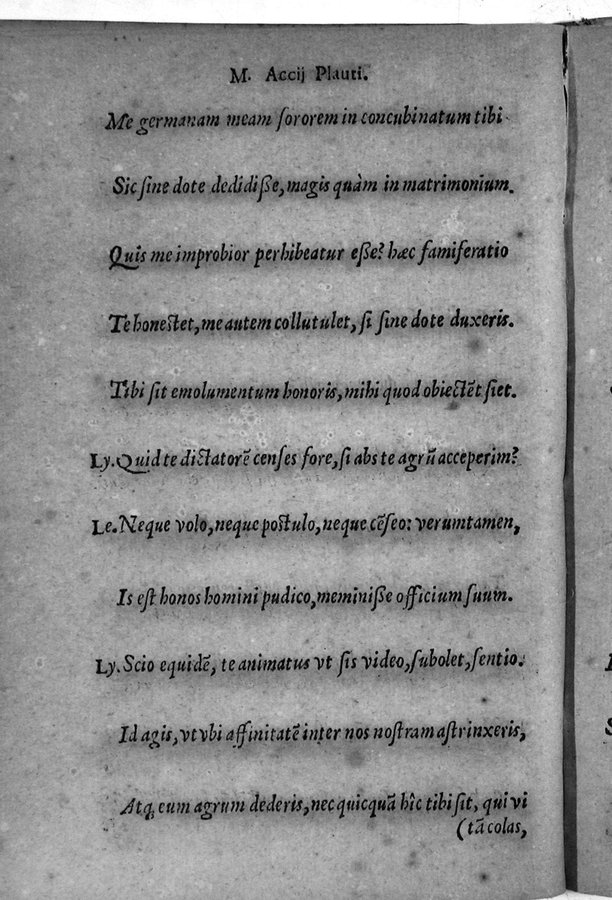 M. Accij Plauti.
Me germanam meam sororem in concubinatum tibi
Sic sine dote dedidiße, magis quàm in matrimonium.
Quis me improbior perhibeatur eße? hæc famiferatio
Te honestet, me autem collutulet, si sine dote duxeris.
Tibi sit emolumentum honoris, mihi quod obiectēt siet.
Ly. Quid te dictatorē censes fore, si abs te agrū acceperim?
Le. Neque volo, neque postulo, neque cēseo: verumtamen,
Is est honos homini pudico, meminiße officium suum.
Ly. Scio equidē, te animatus vt sis video, subolet, sentio.
Id agis, vt vbi affinitatē inter nos nostram astrinxeris,
Atq; eum agrum dederis, nec quicquā hîc tibi sit, qui vi
(tā colas,